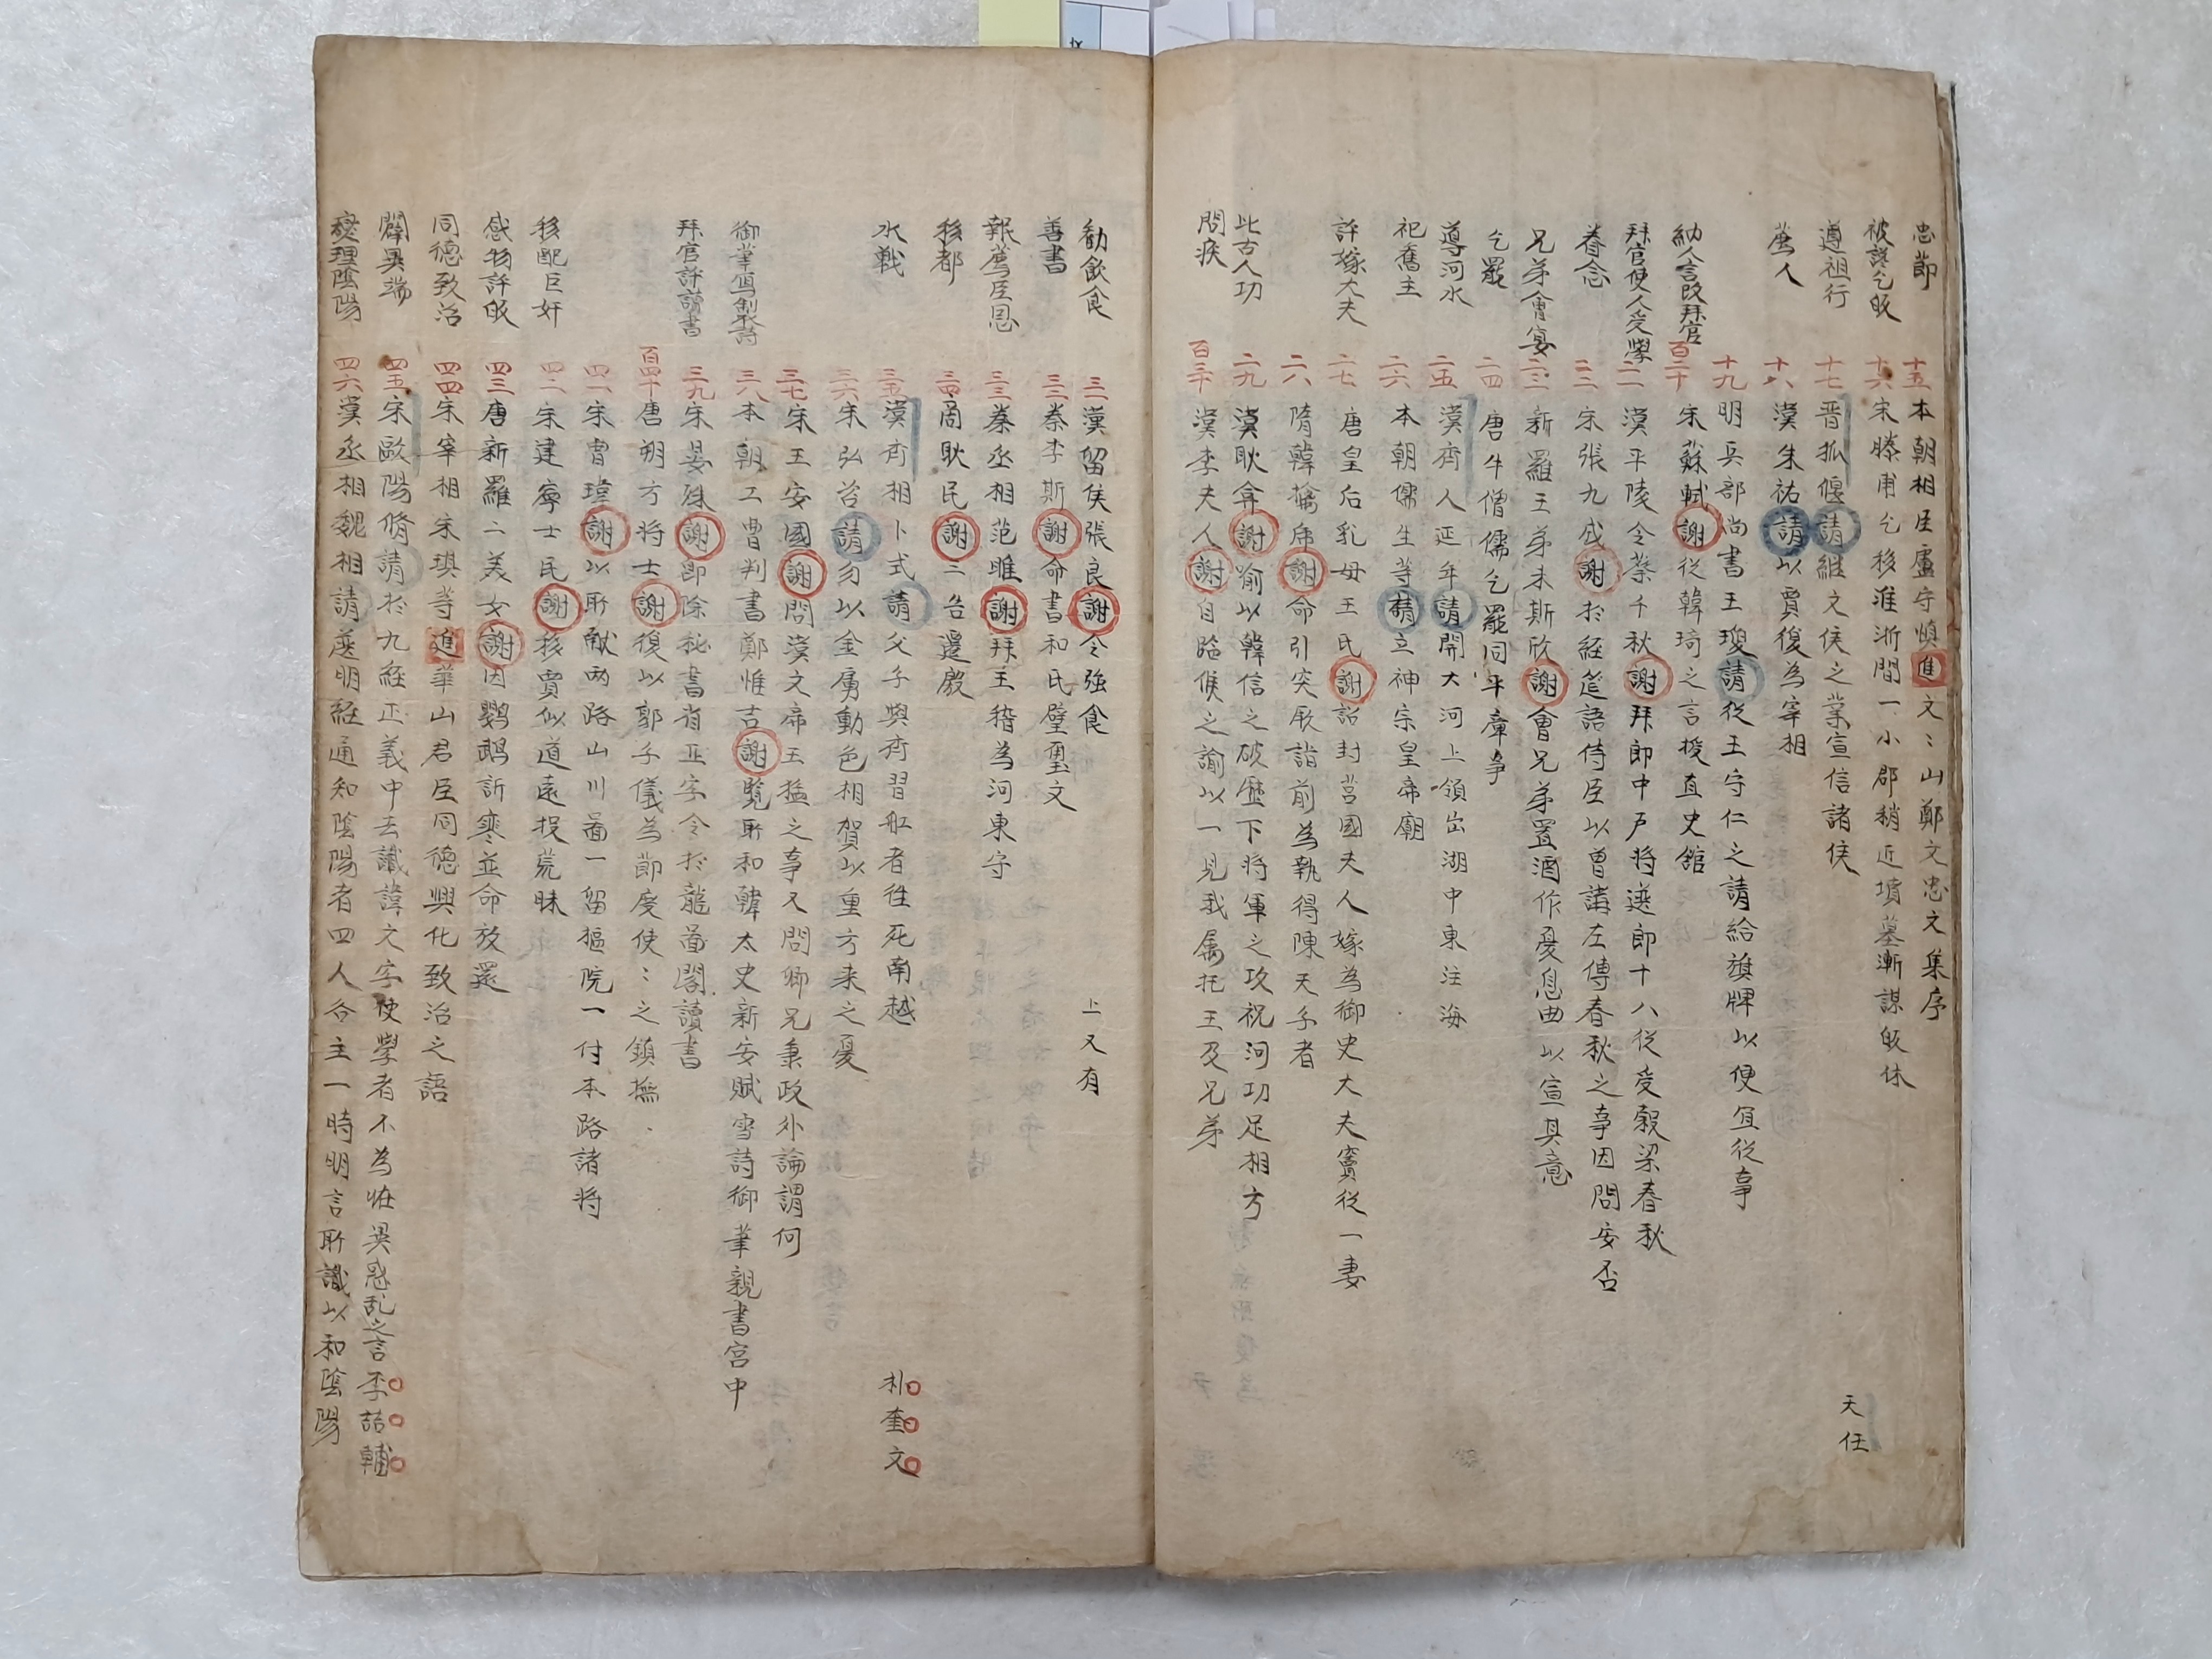 忠節
十五 本朝相臣盧守愼進文〻山鄭文忠文集序
被謗乞皈
十六 宋滕甫乞移淮浙間一小郡稍近墳墓漸謀皈休
遵祖行
十七 晋狐偃請継文侯之業宣信諸侯 天任
薦人
十八 漢朱祐請以賈復為宰相
十九 明兵部尚書王瓊請從王守仁之請給旗牌以便宜從事
納人言改拜官
百二十 宋蘇軾謝從韓琦之言授直史舘
拜官使人受學
二一 漢平陵令蔡千秋謝拜郎中戶將選郎十八從受穀梁春秋
眷念
二二 宋張九成謝於経筵語侍臣以曾講左傳春秋之事因問安否
兄弟會宴
二三 新羅王弟未斯欣謝會兄弟置酒作憂息曲以宣其意
乞罷
二四 唐牛僧儒乞罷同平章事
導河水
二五 漢齊人延年請開大河上領出湖中東注海
祀舊主
二六 本朝儒生等請立神宗皇帝廟
許嫁大夫
二七 唐皇后乳母王氏謝詔封莒國夫人嫁為御史大夫竇從一妻
二八 隋韓擒虎謝命引突厥詣前為執得陳天子者
比古人功
二九 漢耿弇謝諭以韓信之破歷下將軍之攻祝阿功足相方
問疾
百三十 漢李夫人謝自臨候之諭以一見我属托王及兄弟
勧飲食
三一 漢留侯張良謝令強食 上又有
善書
三二 秦李斯謝命書和氏璧璽文
報薦臣恩
三三 秦丞相范雎謝拜王稽為河東守
移都
三四 商耿民謝二告還殷
水戰
三五 漢齊相卜式請父子與齊習船者往死南越 朴奎文
三六 宋弘若請勿以金虜動色相賀以重方来之憂
三七 宋王安國謝問漢文帝王猛之事又問卿兄秉政外論謂何
御筆寫製詩
三八 本朝工曹判書鄭惟吉謝覽所和韓太史新安賦雪詩御筆親書宮中
拜官許讀書
三九 宋晏殊謝即除秘書省正字令於龍啚閣讀書
百四十 唐朔方将士謝復以郭子儀為節度使〻之鎮撫
四一 宋曺瑋謝以所献兩路山川啚一留樞院一付本路諸将
移配巨奸
四二 宋建寧士民謝移賈似道遠投荒昧
感物許皈
四三 唐新羅二美女謝因鸚鵡訴寒並命放還
同德致治
四四 宋宰相宋琪等進華山君臣同德興化致治之語
闢異端
四五 宋歐陽脩請於九経正義中去讖諱文字使學者不為恠異惑乱之言 李喆輔
燮理陰陽
四六 漢丞相魏相請選明経通知陰陽者四人各主一時明言所識以和陰陽